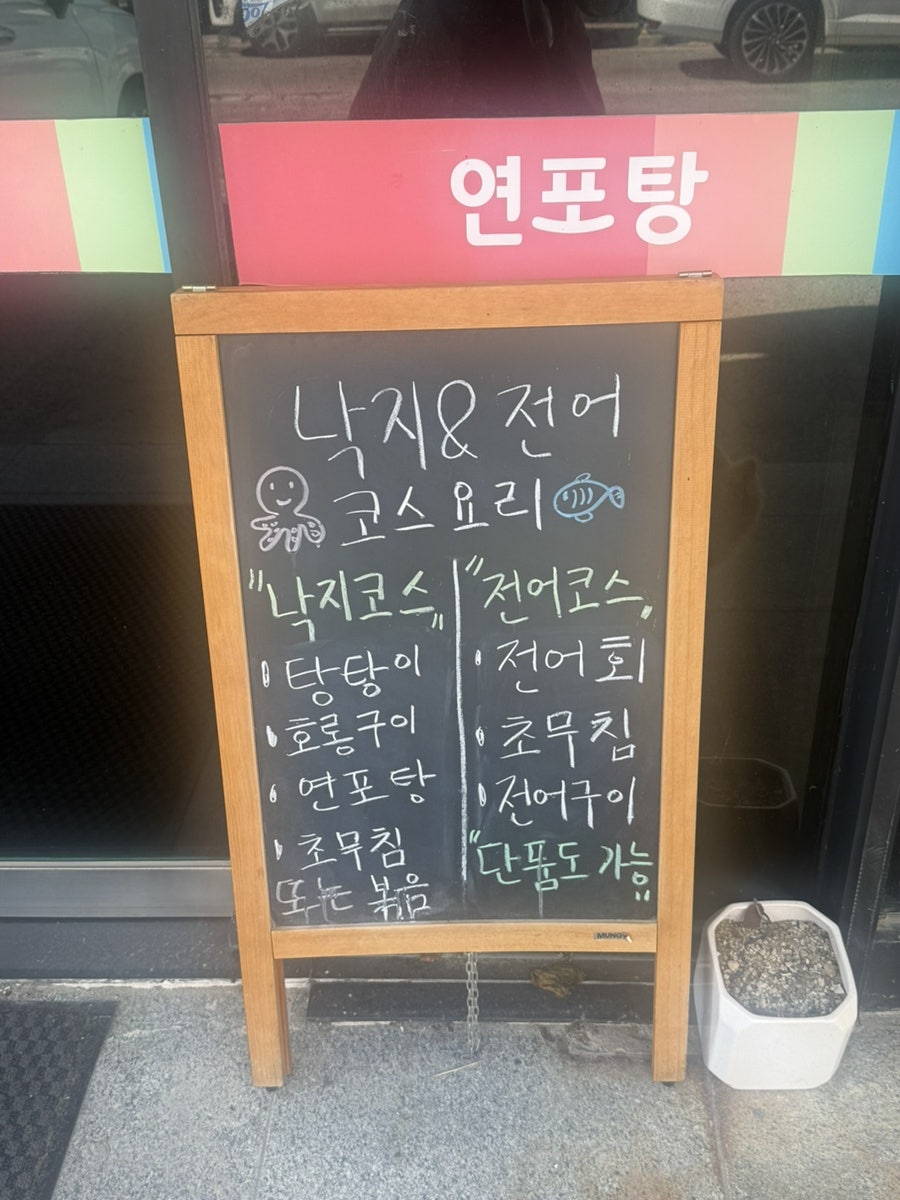 연포탕
낙지& 전어
코스요리
"낙지코스"
• 탕탕이
• 호롱구이
• 연포탕
• 초무침
또는 볶음
"전어코스"
• 전어회
• 초무침
• 전어구이
"단품도 가능"